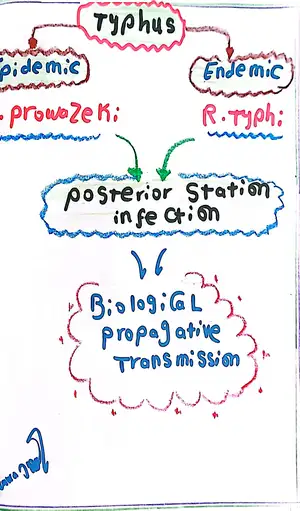 Typhus
pidemic
Endemic
. prowazeki
R. typhi
posterior Station
infection
Biological
propagative
Transmission